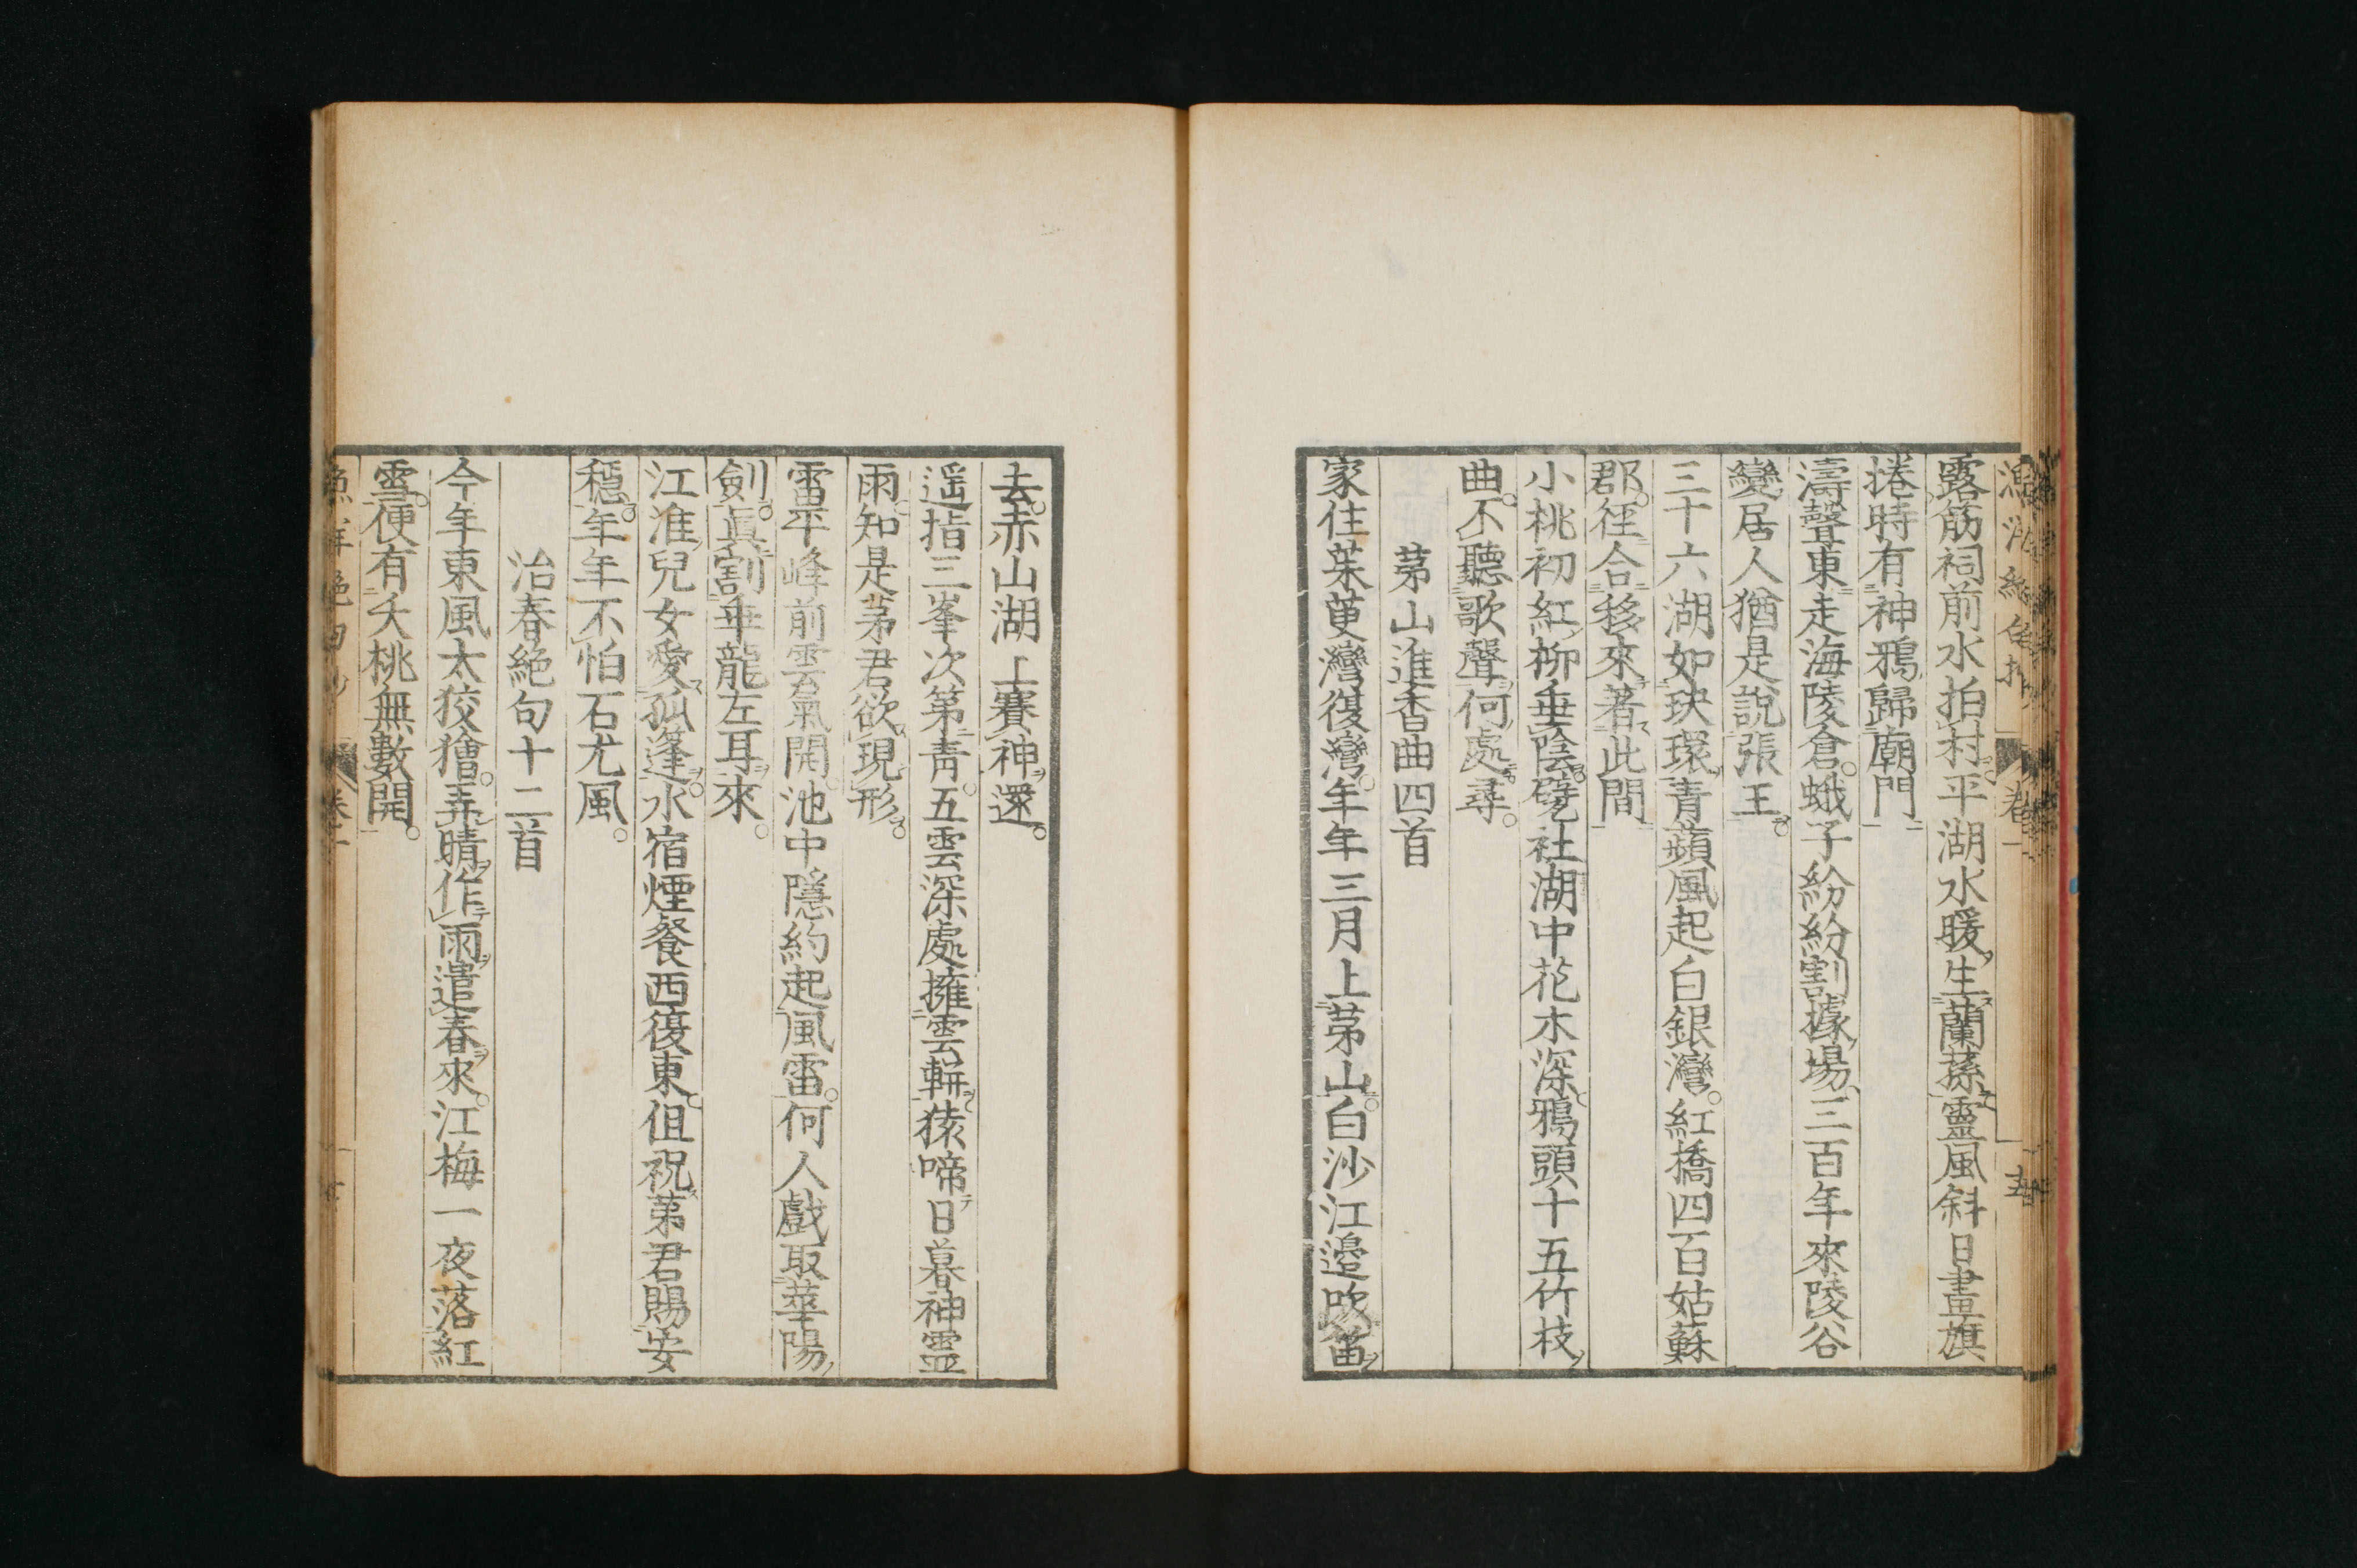 露筋祠前水拍村。平湖水暖生蘭蓀。靈風斜日畫旗
捲時有神鴉歸廟門
濤聲東走海陵倉。蛾子紛紛割據場。三百年來陵谷
變居人猶是說張王。
三十六湖如玦環青蘋風起白銀灣。紅橋四百姑蘇
郡。徑合移來著此間
小桃初紅柳垂陰。甓社湖中花木深。鴉頭十五竹枝
曲。不聽歌聲何處尋。
茅山進香曲四首
家住茱萸灣復灣。年年三月上茅山。白沙江邊吹笛
去。赤山湖上賽神還。
遥指三峯次第青。五雲深處擁雲軿。猿啼日暮神靈
雨知是茅君欲現形。
雷平峰前雲氣開。池中隱約起風雷。何人戲取華陽
劍。眞割乖龍左耳來。
江淮兒女愛孤篷。水宿煙餐西復東。但祝茅君賜安
穩。年年不怕石尤風。
冶春絕句十二首
今年東風太狡獪。弄晴作雨遣春來。江梅一夜落紅
雪。便有夭桃無數開。